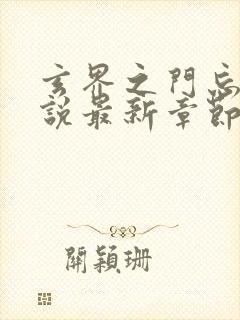 玄界之門忘
說最新章節
關穎珊